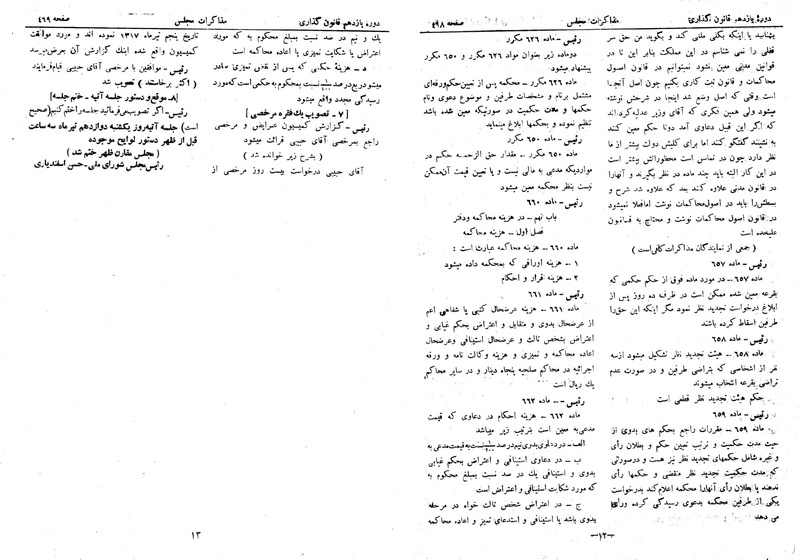 دورۀ یازدهم قانون گذاری
مذاکرات مجلس
صفحه ۴۹۸
بشناسد یا اینکه بکلی ملغی کند و بگوید من حق سر
قفلی را نمی شناسم در این مملکت بنابر این تا در
قوانین مدنی معین نشود نمیتوانیم در قانون اصول
محاکمات و قانون ثبت کاری بکنیم چون اصل آنجا
است وقتی که اصل وضع شد اینجا در شرحش نوشته
میشود ولی همین فکری که آقای وزیر عدلیه کرده‌اند
که اگر این قبیل دعاوی آمد دوتا حکم معین کنند
به نشینند گفتگو کنند اما برای کلیش دولت بیشتر از ما
نظر دارد چون در تماس است محظوراتش بیشتر است
در این کار البته باید چند ماده در نظر بگیرند و آنهارا
در قانون مدنی علاوه کنند بعد که علاوه شد شرح و
بسطش را باید در اصول محاکمات نوشت اما فعلا نمیشود
در قانون اصول محاکمات نوشت و محتاج به قانون
علیحده است
( جمعی از نمایندگان مذاکرات کافی است )
رئیس - ماده ۶۵۷
ماده ۶۵۷ - در مورد ماده فوق از حکم حکمی که
بقرعه معین شده ممکن است در ظرف ده روز پس از
ابلاغ درخواست تجدید نظر نمود مگر اینکه این حق را
طرفین اسقاط کرده باشند
رئیس - ماده ۶۵۸
ماده ۶۵۸ - هیئت تجدید نظر تشکیل میشود ازسه
نفر از اشخاصی که بتراضی طرفین و در صورت عدم
تراضی بقرعه انتخاب میشوند
حکم هیئت تجدید نظر قطعی است
رئیس - ماده ۶۵۹
ماده ۶۵۹ - مقررات راجع بحکم های بدوی از
حیث مدت حکمیت و ترتیب تعیین حکم و بطلان رأی
و غیره شامل حکمهای تجدید نظر نیز هست و درصورتی
که مدت حکمیت تجدید نظر منقضی و حکمها رأی
ندهند یا بطلان رأی آنهارا محکمه اعلام کند بدرخواست
یکی از طرفین محکمه بدعوی رسیدگی کرده ورای
می دهد
رئیس - ماده ۶۳۶ مکرر
دوماده زیر بعنوان مواد ۶۳۶ مکرر و ۶۵۰ مکرر
پیشنهاد میشود
ماده ۶۳۶ مکرر - محکمه پس از تعیین حکم ورقه‌ای
مشتمل برنام و مشخصات طرفین و موضوع دعوی ونام
حکمها و مدت حکمیت در صورتیکه معین شده باشد
تنظیم نموده و بحکمها ابلاغ مینماید
رئیس - ماده ۶۵۰ مکرر
ماده ۶۵۰ مکرر - مقدار حق الزحمه حکم در
مواردیکه مدعی به مالی نیست و یا تعیین قیمت آن ممکن
نیست بنظر محکمه معین میشود
رئیس - ماده ۶۶۰
باب نهم - در هزینه محاکمه ودفتر
فصل اول - هزینه محاکمه
ماده ۶۶۰ - هزینه محاکمه عبارت است :
۱ - هزینه اوراقی که بمحکمه داده میشود
۲ - هزینه قرار و احکام
رئیس - ماده ۶۶۱
ماده ۶۶۱ - هزینه عرضحال کتبی یا شفاهی اعم
از عرضحال بدوی و متقابل و اعتراض بحکم غیابی و
اعتراض بشخص ثالث و عرضحال استینافی وعرضحال
اعاده محاکمه و تمیزی و هزینه وکالت نامه و ورقه
اجرائیه در محاکم صلحیه پنجاه دینار و در سایر محاکم
یك ریال است
رئیس - ماده ۶۶۲
ماده ۶۶۲ - هزینه احکام در دعاوی که قیمت
مدعی به معین است بترتیب زیر میباشد
الف - در دعاوی بدوی نیم درصد نسبت به قیمت مدعی به
ب - در دعاوی استینافی و اعتراض بحکم غیابی
بدوی و استینافی یك در صد نسبت بمبلغ محکوم به
که مورد شکایت استینافی و اعتراض است
ج - در اعتراض شخص ثالث خواه در مرحله
بدوی باشد یا استینافی و استدعای تمیز و اعاده محاکمه
-۱۲-
دورۀ یازدهم قانون گذاری
مذاکرات مجلس
صفحه ۴۶۹
یك و نیم در صد نسبت بمبلغ محکوم به که مورد
اعتراض یا شکایت تمیزی یا اعاده محاکمه است
د - هزینۀ حکمی که پس از نقض تمیزی صادر
میشود دربع درصد نسبت بمحکوم به حکمی است که مورد
رسیدگی مجدد واقع میشود
[ ۷ - تصویب یك فقره مرخصی ]
رئیس - گزارش کمیسیون عرایض و مرخصی
راجع بمرخصی آقای حبیبی قرائت میشود
( بشرح زیر خوانده شد )
آقای حبیبی درخواست بیست روز مرخصی از
تاریخ پنجم تیرماه ۱۳۱۷ نموده اند و مورد موافقت
کمیسیون واقع شده اینك گزارش آن بعرض میرسد
رئیس - موافقین با مرخصی آقای حبیبی قیام فرمایند
( اکثر برخاستند ) تصویب شد
[۸- موقع و دستور جلسه آتیه - ختم جلسه]
رئیس - اگر تصویب می فرمائید جلسه را ختم کنیم (صحیح
است) جلسه آتیه روز یکشنبه دوازدهم تیر ماه سه ساعت
قبل از ظهر دستور لوایح موجوده
( مجلس مقارن ظهر ختم شد )
رئیس مجلس شورای ملی - حسن اسفندیاری
۱۳